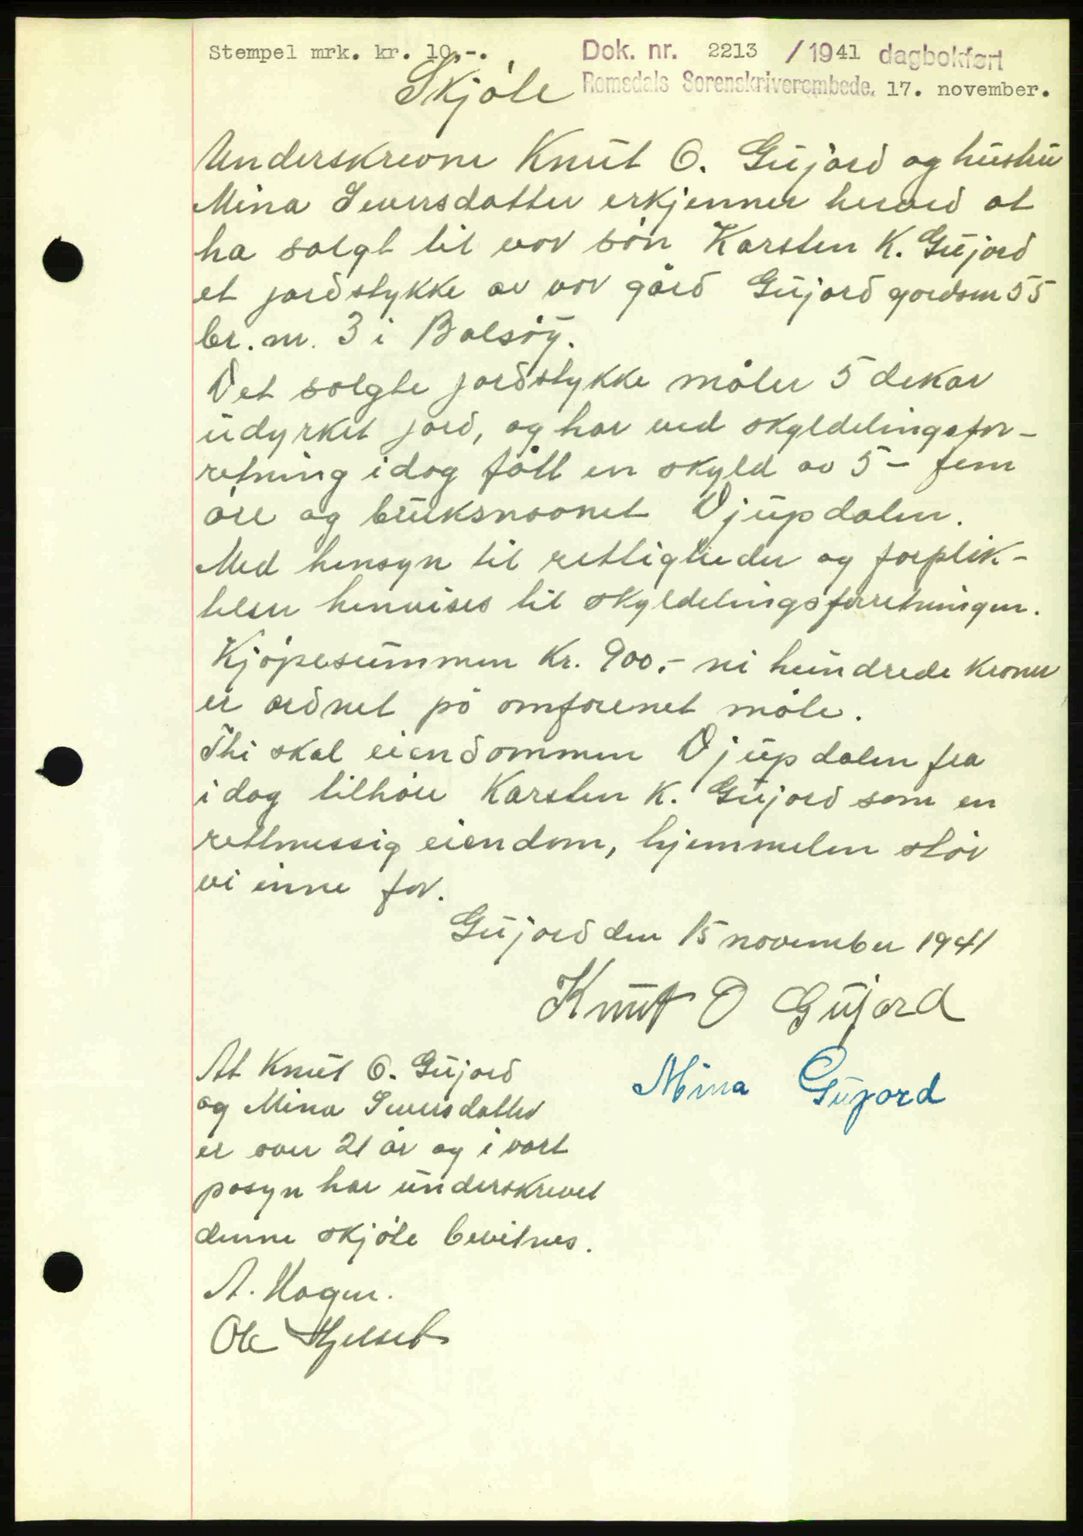 Stempel mrk. kr. 10,-.
Dok. nr. 2213 /1941 dagbokført
Romsdals Sorenskriverembede. 17. november.
Skjöte
Underskrevne Knut O. Gujord og hustru
Mina Seversdatter erkjenner herved at
ha solgt til vor sön Karsten K. Gujord
et jordstykke av vor gård Gujord gardsnr 55
br. nr. 3 i Bolsöy.
Det solgte jordstykke måler 5 dekar
udyrket jord, og har ved skyldelingsfor-
retning idag fått en skyld av 5 - fem
öre og bruksnavnet Djupdalen.
Med hensyn til rettigheder og forplik-
telser henvises til skyldelingsforretningen.
Kjöpesummen Kr. 900.- ni hundrede kroner
er ordnet på omforenet måte.
Thi skal eiendommen Djupdalen fra
idag tilhöre Karsten K. Gujord som en
rettmessig eiendom, hjemmelen står
vi inne for.
Gujord den 15 november 1941
Knut O Gujord
Mina Gujord
At Knut O. Gujord
og Mina Seversdatter
er over 21 år og i vort
påsyn har underskrevet
denne skjöte bevitnes.
A. Hagen.
Ole Hjelset